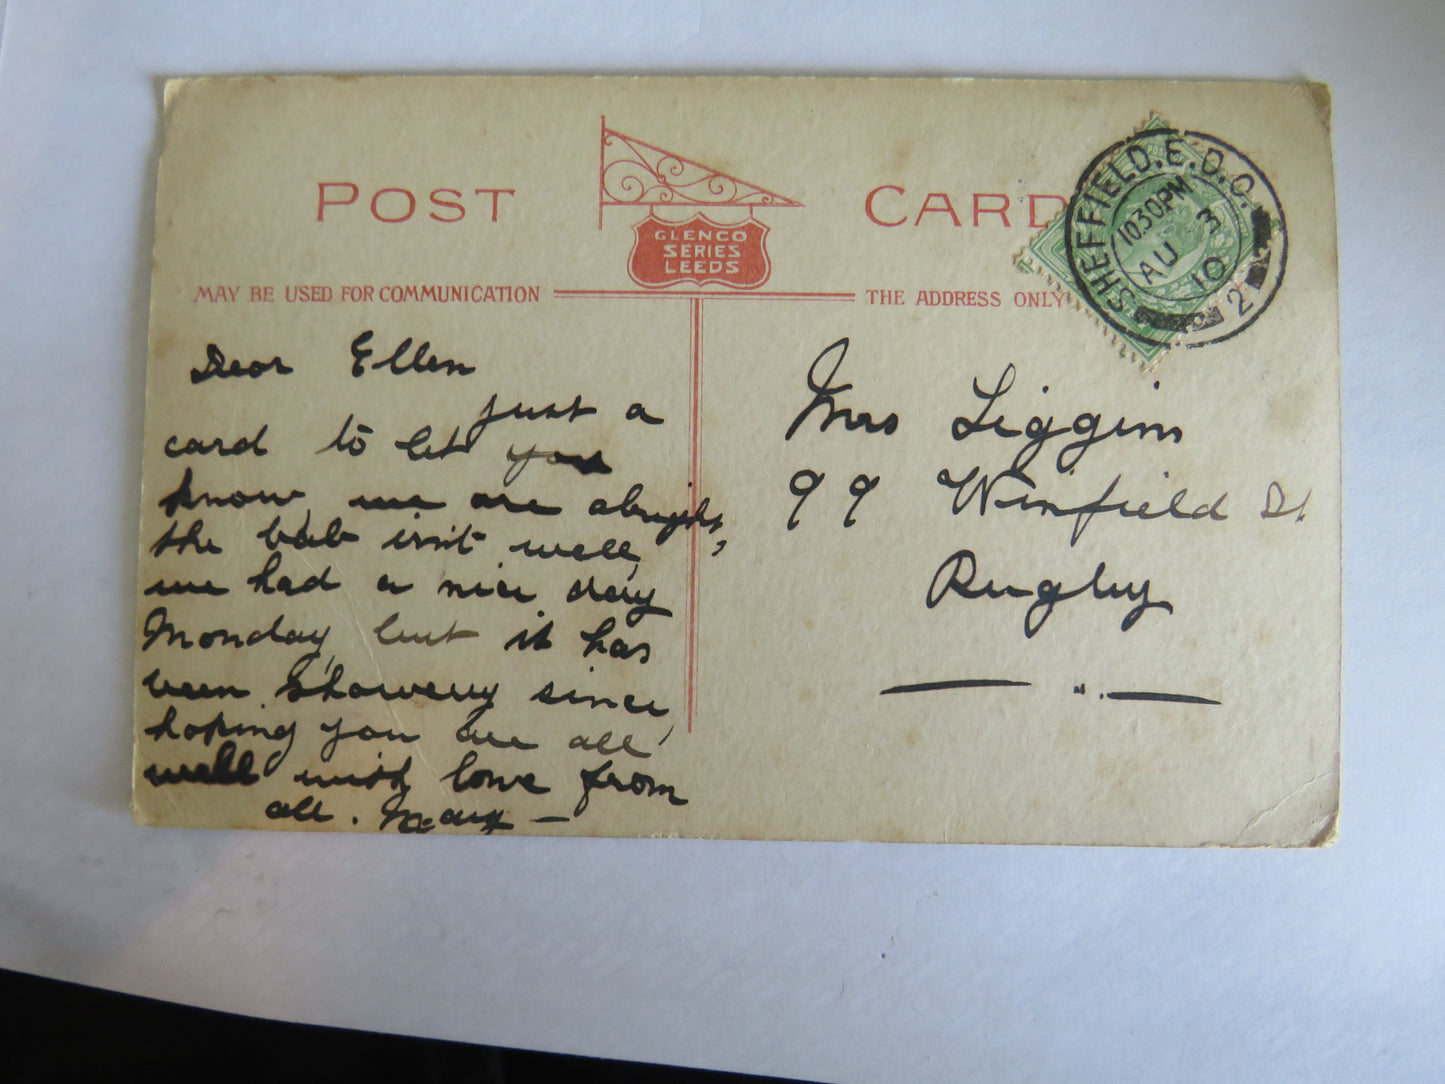 POST CARD
GLENCO
SERIES
LEEDS
MAY BE USED FOR COMMUNICATION
THE ADDRESS ONLY
SHEFFIELD.E.D.O.
1030PM
AU 3
10
2
Dear Ellen
just a
card to let you
know, we are alright,
the bab isn't well,
we had a nice day
Monday, but it has
been showery since,
hoping you are all
well with love from
all. Mary –
Mrs Liggins
99 Winfield St
Rugby